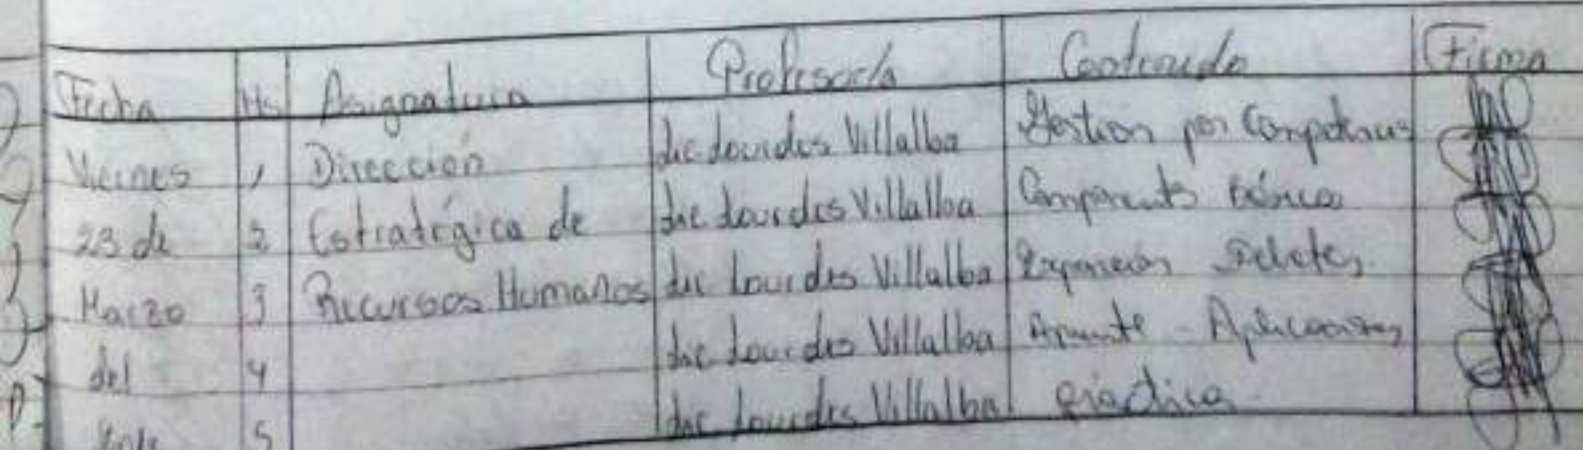 Fecha Hs Asignatura Profesor/a Contenido Firma
Viernes 1 Dirección Lic Lourdes Villalba Gestion por Competencias
23 de 2 Estratégica de Lic Lourdes Villalba Componentes Básicos
Marzo 3 Recursos Humanos Lic Lourdes Villalba Exposición Debates
del 4 Lic Lourdes Villalba Apunte - Aplicaciones
5 Lic Lourdes Villalba práctica